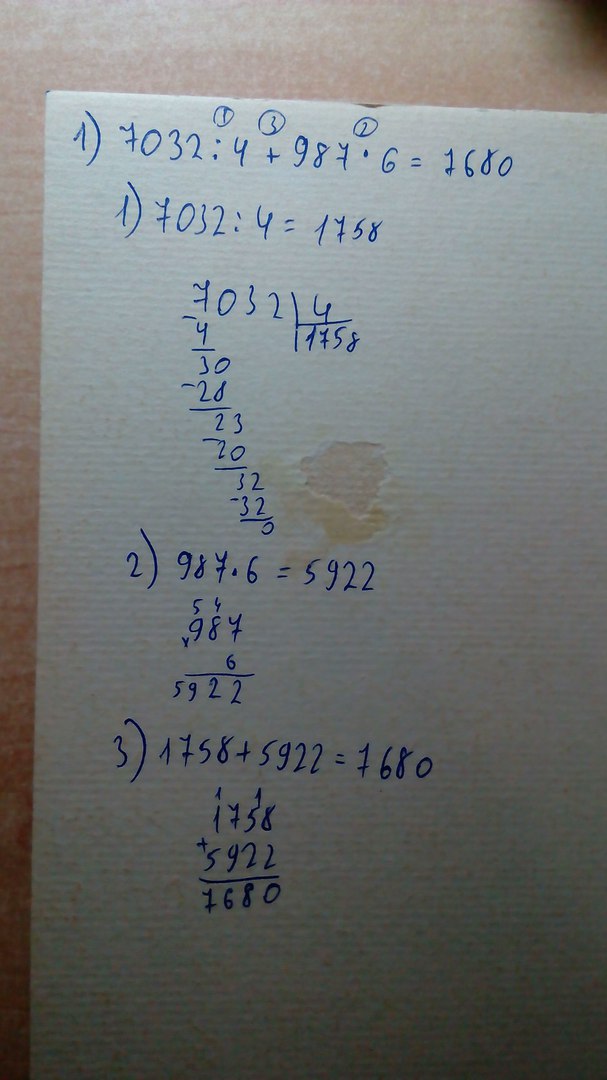 ① ③ ②
1) 7032 : 4 + 987 · 6 = 7680
1) 7032 : 4 = 1758
7032 | 4
- 4 | 1758
30
- 28
23
- 20
32
- 32
0
2) 987 · 6 = 5922
5 4
987
x 6
5922
3) 1758 + 5922 = 7680
1 1
1758
+ 5922
7680